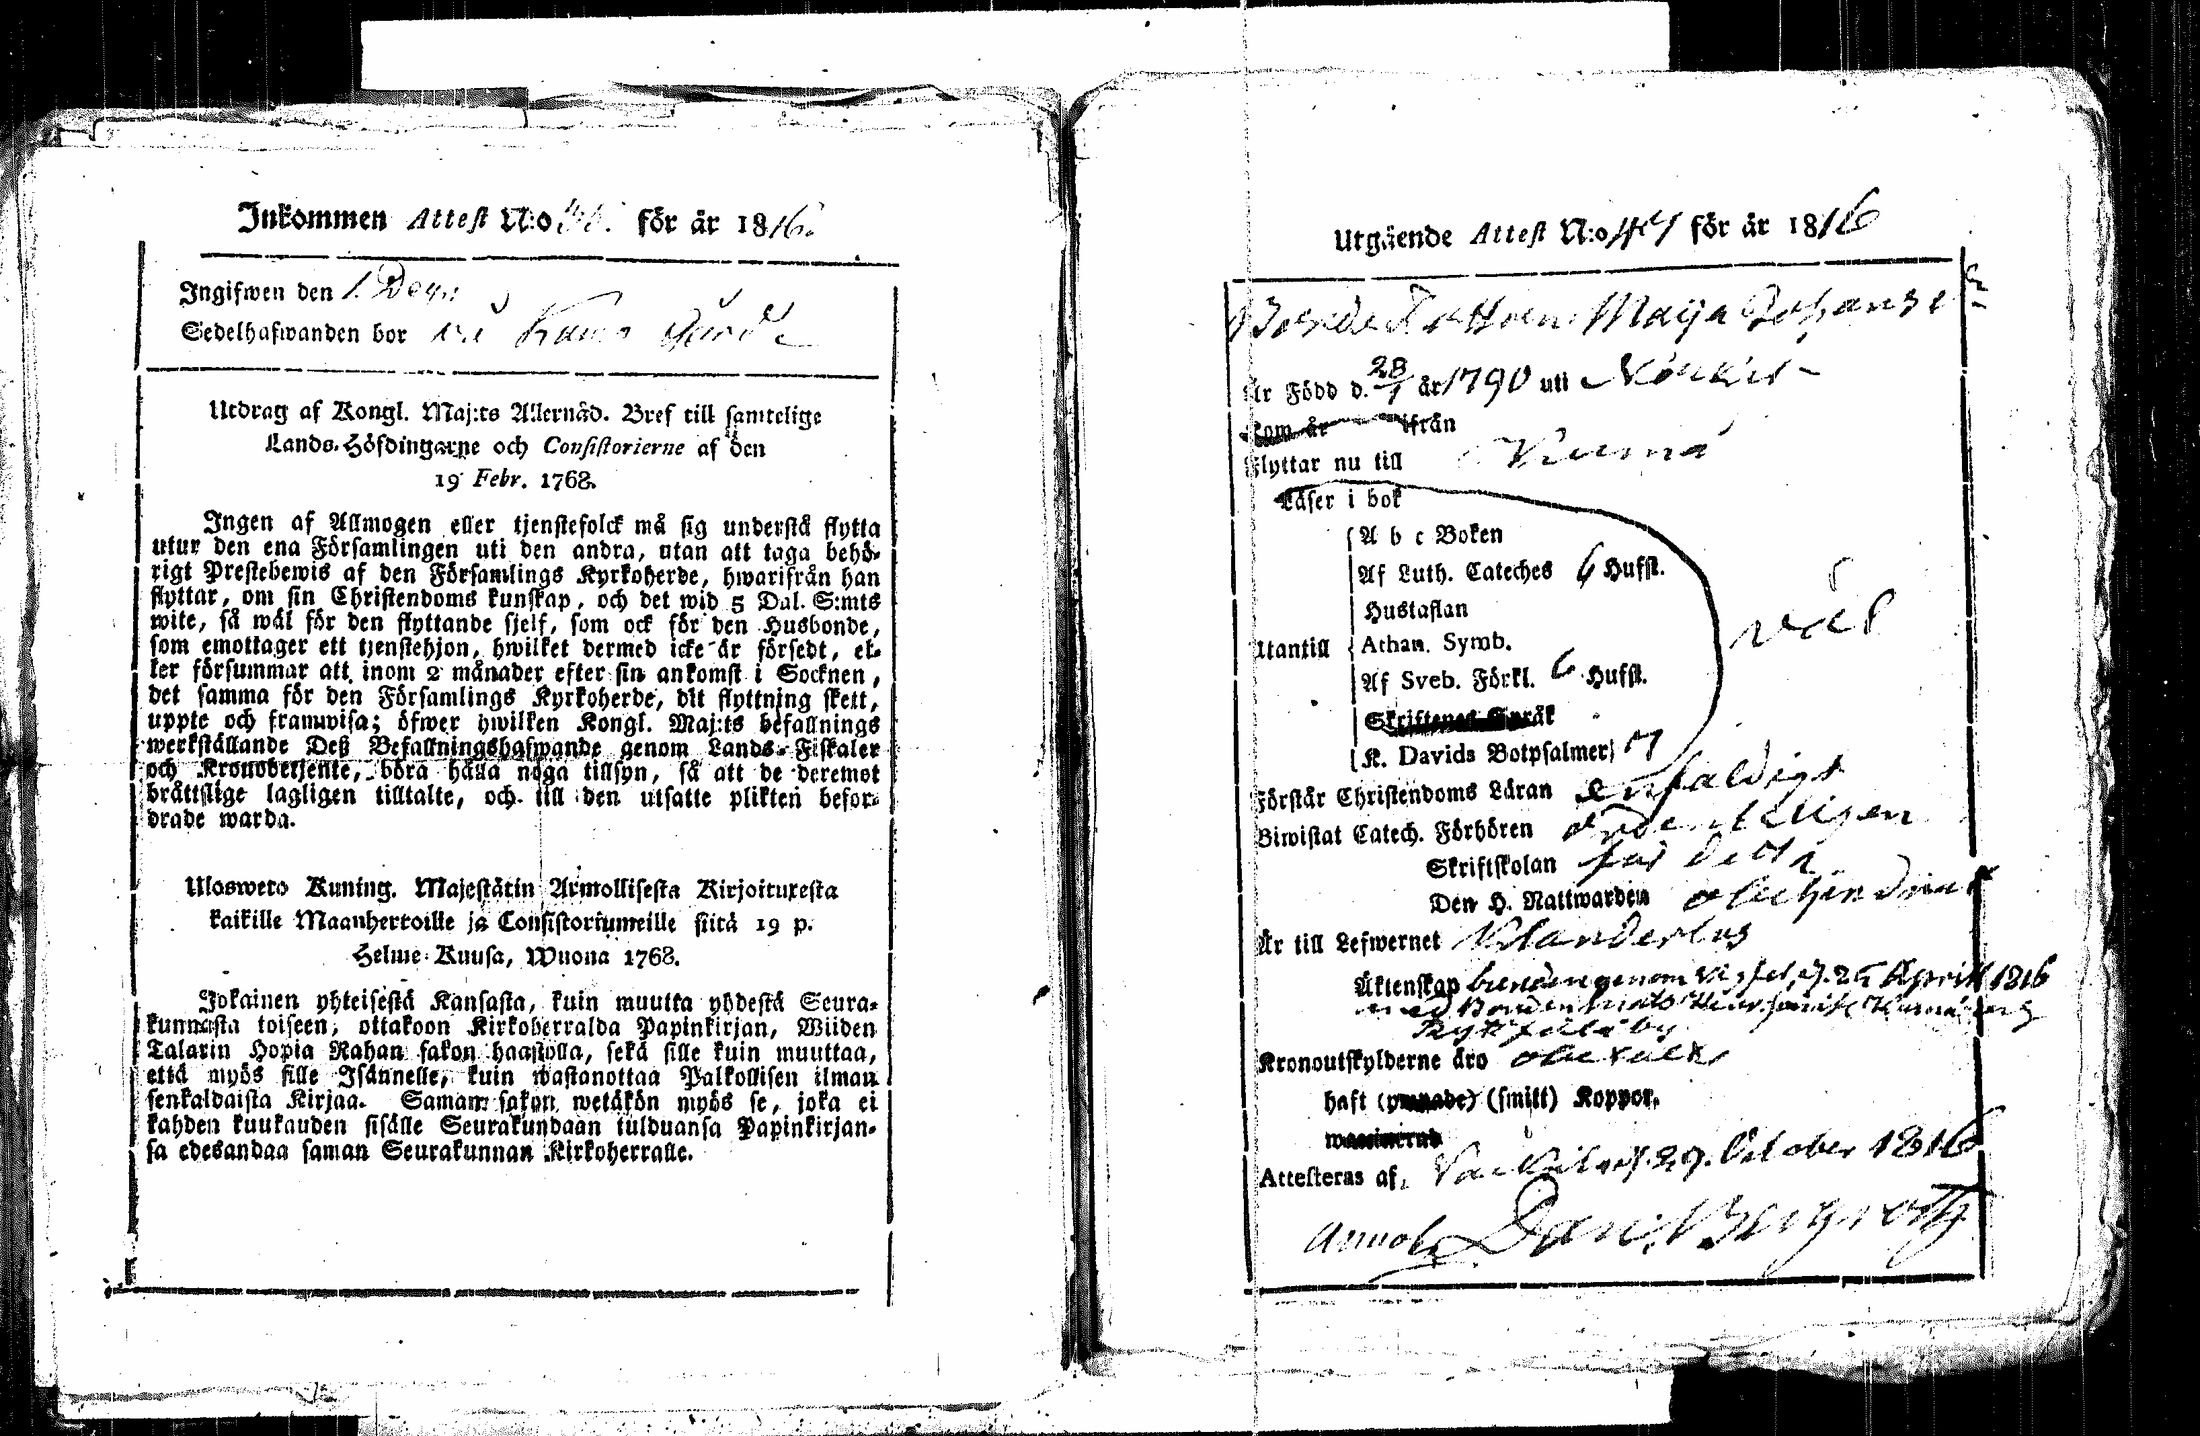 Inkommen Attest N:o för år 1816.
Ingifwen den 1. Dec
Sedelhafwanden bor
Utdrag af Kongl. Maj:ts Allernåd. Bref till samtelige
Lands-Höfdingarne och Consistorierne af den
19 Febr. 1768.
Ingen af Allmogen eller tjenstefolck må sig understå flytta
utur den ena Församlingen uti den andra, utan att taga behö-
rigt Prestebewis af den Församlings Kyrkoherde, hwarifrån han
flyttar, om sin Christendoms kunskap, och det wid 5 Dal. S:mts
wite, så wäl för den flyttande sjelf, som ock för den Husbonde,
som emottager ett tjenstehjon, hwilket dermed icke är försedt, el-
ler försummar att inom 2 månader efter sin ankomst i Socknen,
det samma för den Församlings Kyrkoherde, dit flyttning skett,
uppte och framwisa; öfwer hwilken Kongl. Maj:ts befallnings
werkställande Deß Befallningshafwande genom Lands-Fiskaler
och Kronobetjente, böra hålla noga tillsyn, så att de deremot
bråttslige lagligen tilltalte, och till den utsatte plikten befor-
drade warda.
Ulosweto Kuning. Majestätin Armollisesta Kirjoituxesta
kaikille Maanhertoille ja Consistoriumeille siitä 19 p.
Helme-Kuusa, Wuona 1768.
Jokainen yhteisestä Kansasta, kuin muutta yhdestä Seura-
kunnasta toiseen, ottakoon Kirkoherralda Papinkirjan, Wiiden
Talarin Hopia Rahan sakon haastolla, sekä sille kuin muuttaa,
että myös sille Isännelle, kuin wastanottaa Palkollisen ilman
senkaldaista Kirjaa. Saman sakon wetäkön myös se, joka ei
kahden kuukauden sisälle Seurakundaan tulduansa Papinkirjan-
sa edesandaa saman Seurakunnan Kirkoherralle.
Utgående Attest N:o för år 1816
Bonde Dottren Maija Johans
Är Född d. 28/1 år 1790 uti
kom år ifrån
Flyttar nu till Kumo
Läser i bok
A b c Boken
Af Luth. Cateches 6 Hufst.
Hustaflan
Utantill Athan. Symb.
Af Sveb. Förkl. 6 Hufst.
Skriftenes Språk
K. Davids Botpsalmer 7
väl
Förstår Christendoms Läran enfaldigt
Biwistat Catech. Förhören ordenteligen
Skriftskolan för detta
Den H. Nattwarden
Är till Lefwernet Klanderlös
Äktenskap bunden genom vigsel d. 25 April 1816
med Bonden
Kronoutskylderne äro
haft (smitt) Koppor.
Attesteras af, d. 29. October 1816
Dan. Bergroth